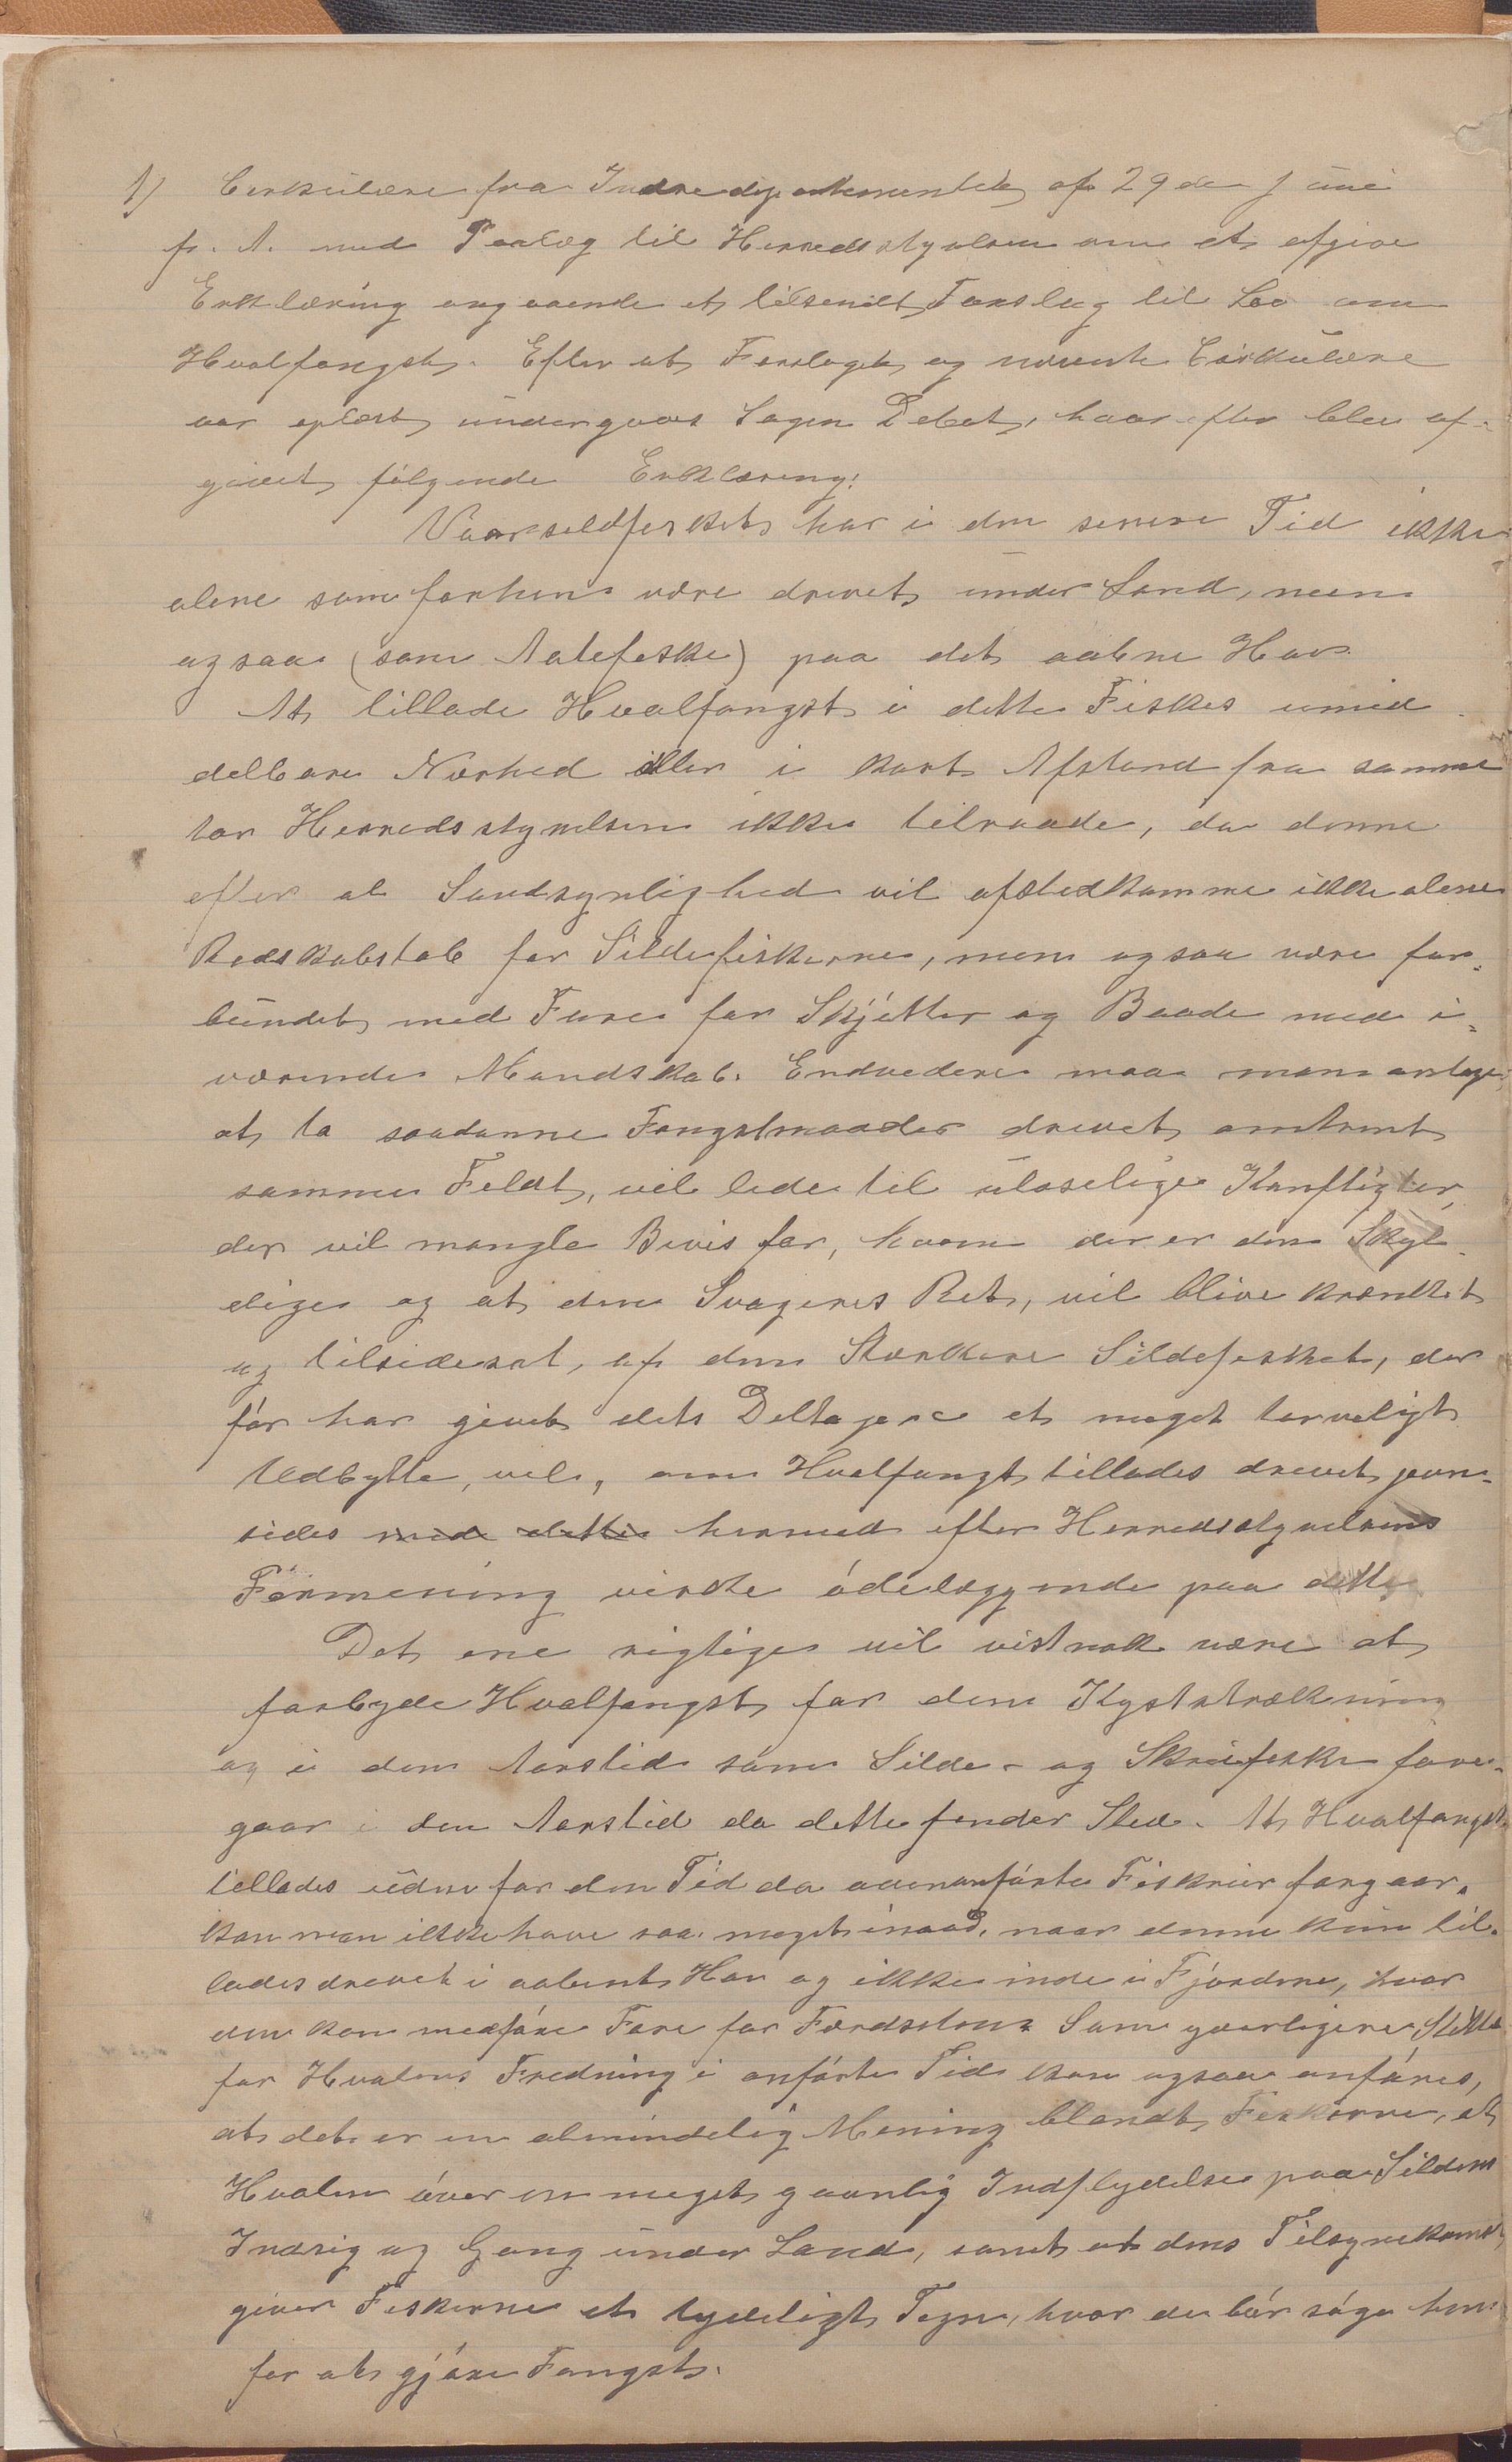 1) Cirkulære fra Indredepartementet af 29de Juni
f. A. med Paalæg til Herredsstyrelsen om at afgive
Erklæring angaaende et tilsendt Forslag til Lov om
Hvalfangst. Efter at Forslaget og nævnte Cirkulære
var oplæst undergaves Sagen Debat, hvorefter blev af-
givet følgende Erklæring:
Vaarsildfisket har i den senere Tid ikke
alene som forhen være drevet under Land, men
ogsaa (som Natefiske) paa det aabne Hav.
At tillade Hvalfangst i dette Fiskes umid-
delbare Nærhed eller i kort Afstand fra samme
tør Herredsstyrelsen ikke tilraade, da denne
efter al Sandsynlighed vil afstedkomme ikke alene
Redskabstab for Sildefiskerne, men ogsaa være for-
bundet med Fare for Skjøtter og Baade med i-
værende Mandskab. Endvedere maa man antage
at to saadanne Fangstmaader drevet omtrent
samme Feldt, vil lede til uløselige Konflikter,
der vil mangle Bevis for, hvem der er den Skyl-
dige og at den Svageres Ret, vil blive krænket
og tilsidesat, af den Stærkere Sildefisket, der
før har givet dets Deltagere et meget tarveligt
Udbytte, vil, om Hvalfangst tillades drevet jevn-
sides med dette hermed efter Herredsstyrelsens
Formening virke ødelæggende paa dette.
Det ene rigtige vil vistnok være at
forbyde Hvalfangst for den Kyststrækning
og i den Aarstid som Silde- og Skreifiske fore-
gaar i den Aarstid da dette finder Sted. At Hvalfangst
tillades udenfor den Tid da ovenanførte Fiskerier forgaar,
kan man ikke have saa meget imod, naar denne kun til-
lades drevet i aabent Hav og ikke inde i Fjordene, hvor
den kan medføre Fare for Færdselen. Som yderligere Støtte
for Hvalens Fredning i anførte Tid kan ogsaa anføres,
at det er en almindelig Mening blandt Fiskerne, at
Hvalen øver en meget gavnlig Indflydelse paa Sildens
Indsig og Gang under Land, samt at dens Tilsynekomst
giver Fiskerne et tydeligt Tegn, hvor de bør søge hen
for at gjøre Fangst.